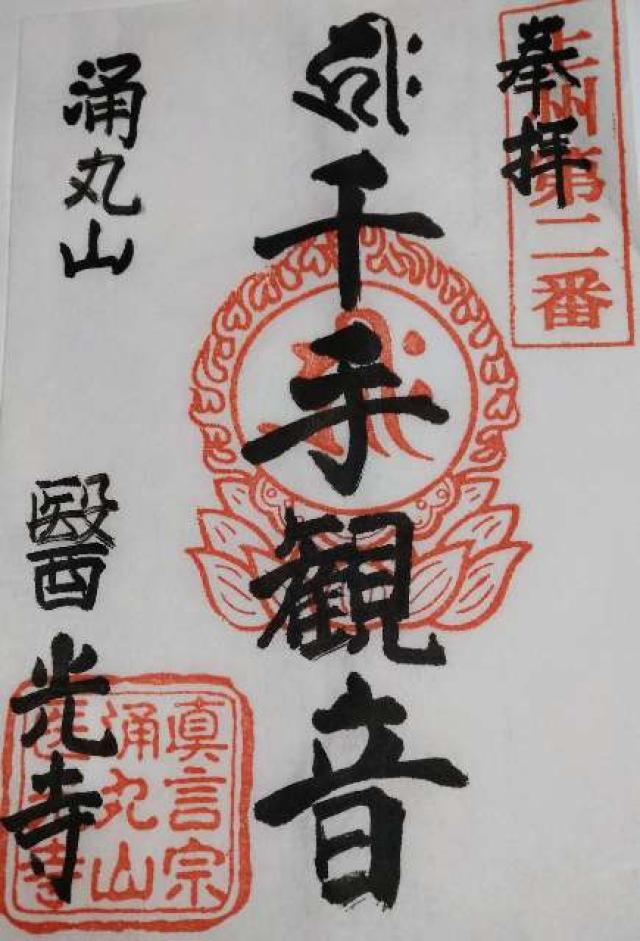 奉拝
上州第二番
千手観音
涌丸山
醫光寺
真言宗
涌丸山
醫光寺